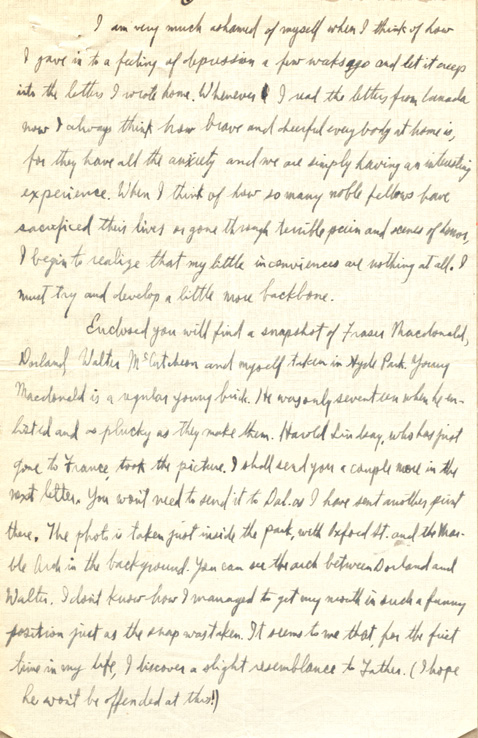 I am very much ashamed of myself when I think of how
I gave in to a feeling of depression a few weeks ago and let it creep
into the letters I wrote home. Whenever I read the letters from Canada
now I always think how brave and cheerful everybody at home is,
for they have all the anxiety and we are simply having an interesting
experience. When I think of how so many noble fellows have
sacrificed their lives or gone through terrible pain and scenes of horror,
I begin to realize that my little inconviences are nothing at all. I
must try and develop a little more backbone.
Enclosed you will find a snapshot of Fraser Macdonald,
Dorland, Walter McCutcheon and myself taken in Hyde Park. Young
Macdonald is a regular young brick. He was only seventeen when he en-
listed and as plucky as they make them. Harold Lindsay, who has just
gone to France, took the picture. I shall send you a couple more in the
next letter. You won't need to send it to Dal. as I have sent another print
there. The photo is taken just inside the park, with Oxford St. and the Mar-
ble Arch in the background. You can see the arch between Dorland and
Walter. I don't know how I managed to get my mouth in such a funny
position just as the snap was taken. It seems to me that, for the first
time in my life, I discover a slight resemblance to Father. (I hope
he won't be offended at this!)